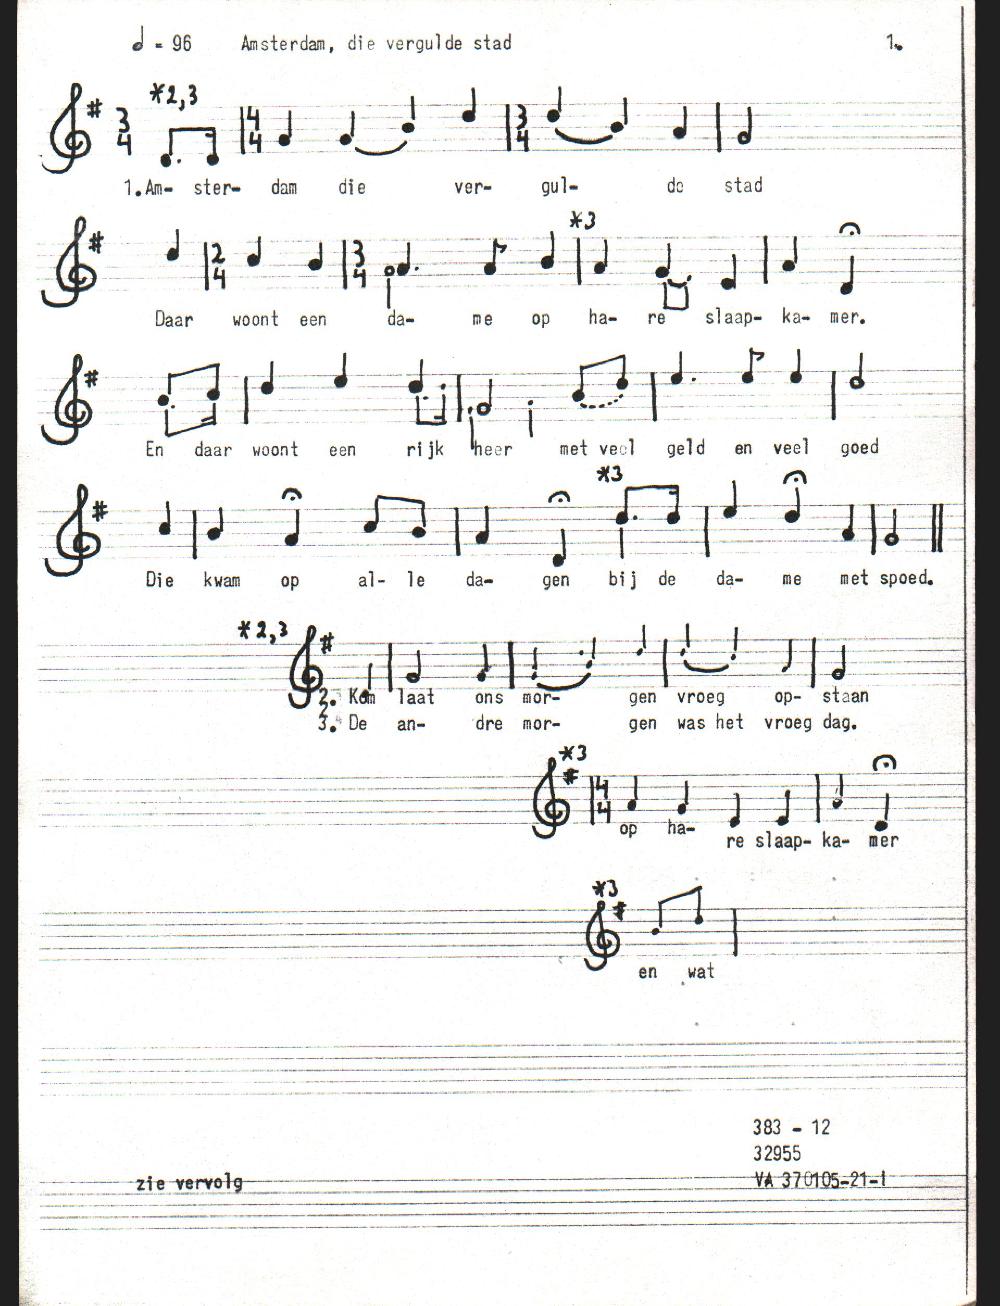 = 96 Amsterdam, die vergulde stad 1.
*2,3
3 4 4 4 3 4
1.Am- ster- dam die ver- gul- de stad
*3
2 4 3 4
Daar woont een da- me op ha- re slaap- ka- mer.
En daar woont een rijk heer met veel geld en veel goed
*3
Die kwam op al- le da- gen bij de da- me met spoed.
*2,3
2. Kom laat ons mor- gen vroeg op- staan
3. De an- dre mor- gen was het vroeg dag.
*3
4 4
op ha- re slaap- ka- mer
*3
en wat
383 - 12
32955
zie vervolg VA 370105-21-1